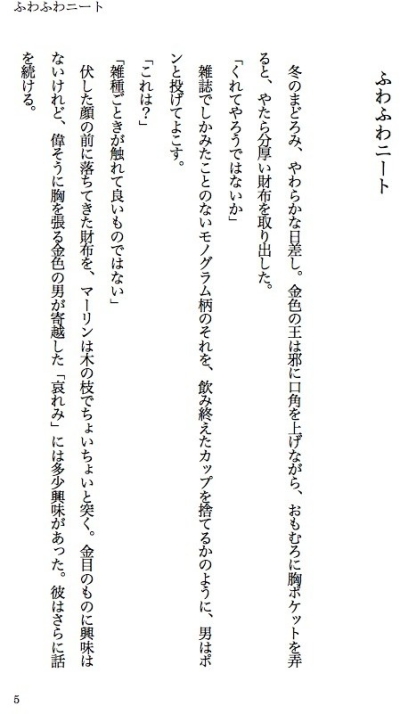 ふわふわニート
ふわふわニート
冬のまどろみ、やわらかな日差し。金色の王は邪に口角を上げながら、おもむろに胸ポケットを弄
ると、やたら分厚い財布を取り出した。
「くれてやろうではないか」
雑誌でしかみたことのないモノグラム柄のそれを、飲み終えたカップを捨てるかのように、男はポ
ンと投げてよこす。
「これは？」
「雑種ごときが触れて良いものではない」
伏した顔の前に落ちてきた財布を、マーリンは木の枝でちょいちょいと突く。金目のものに興味は
ないけれど、偉そうに胸を張る金色の男が寄越した「哀れみ」には多少興味があった。彼はさらに話
を続ける。
5